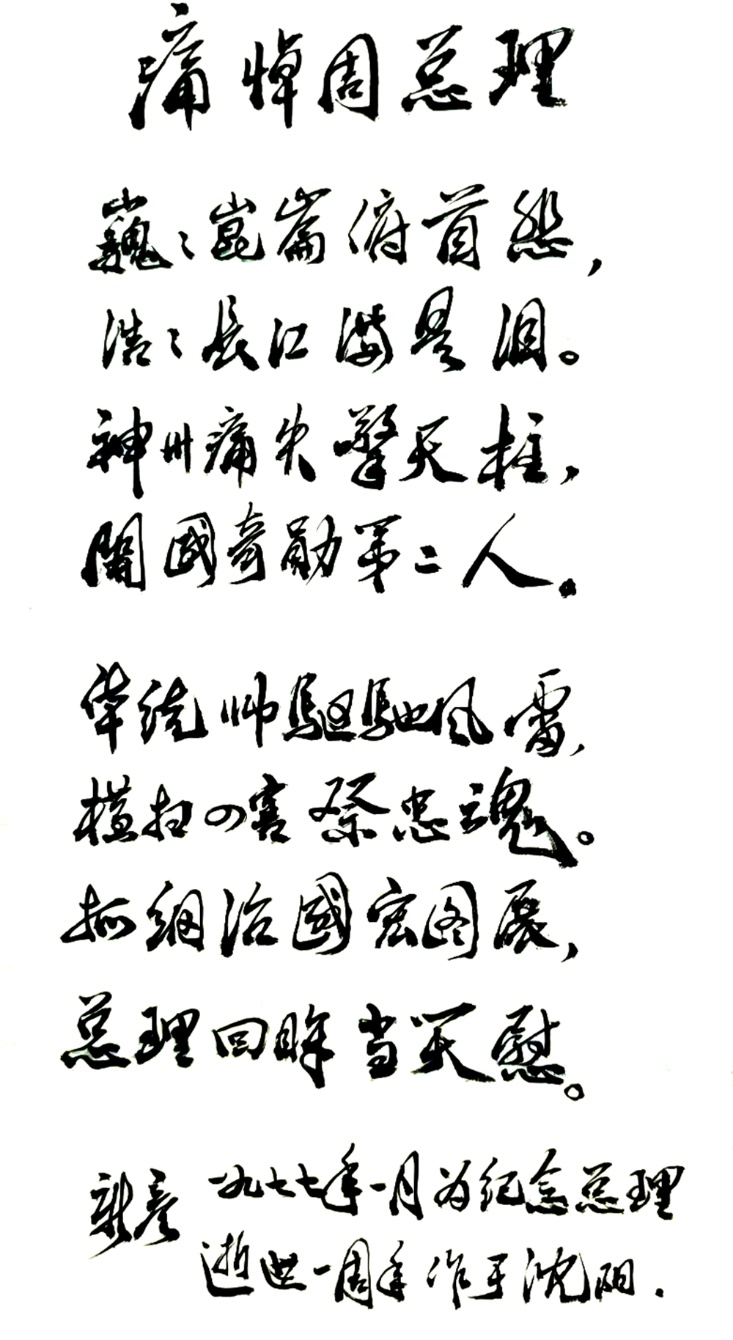 痛悼周总理
巍々崑崙俯首悲,
浩々長江满是泪。
神州痛失擎天柱,
開國奇勋第二人。
华统帅驅馳风雷,
横扫四害祭忠魂。
抓纲治國宏图展,
总理回眸当笑慰。
一九七七年一月为纪念总理
逝世一周年作于沈阳.